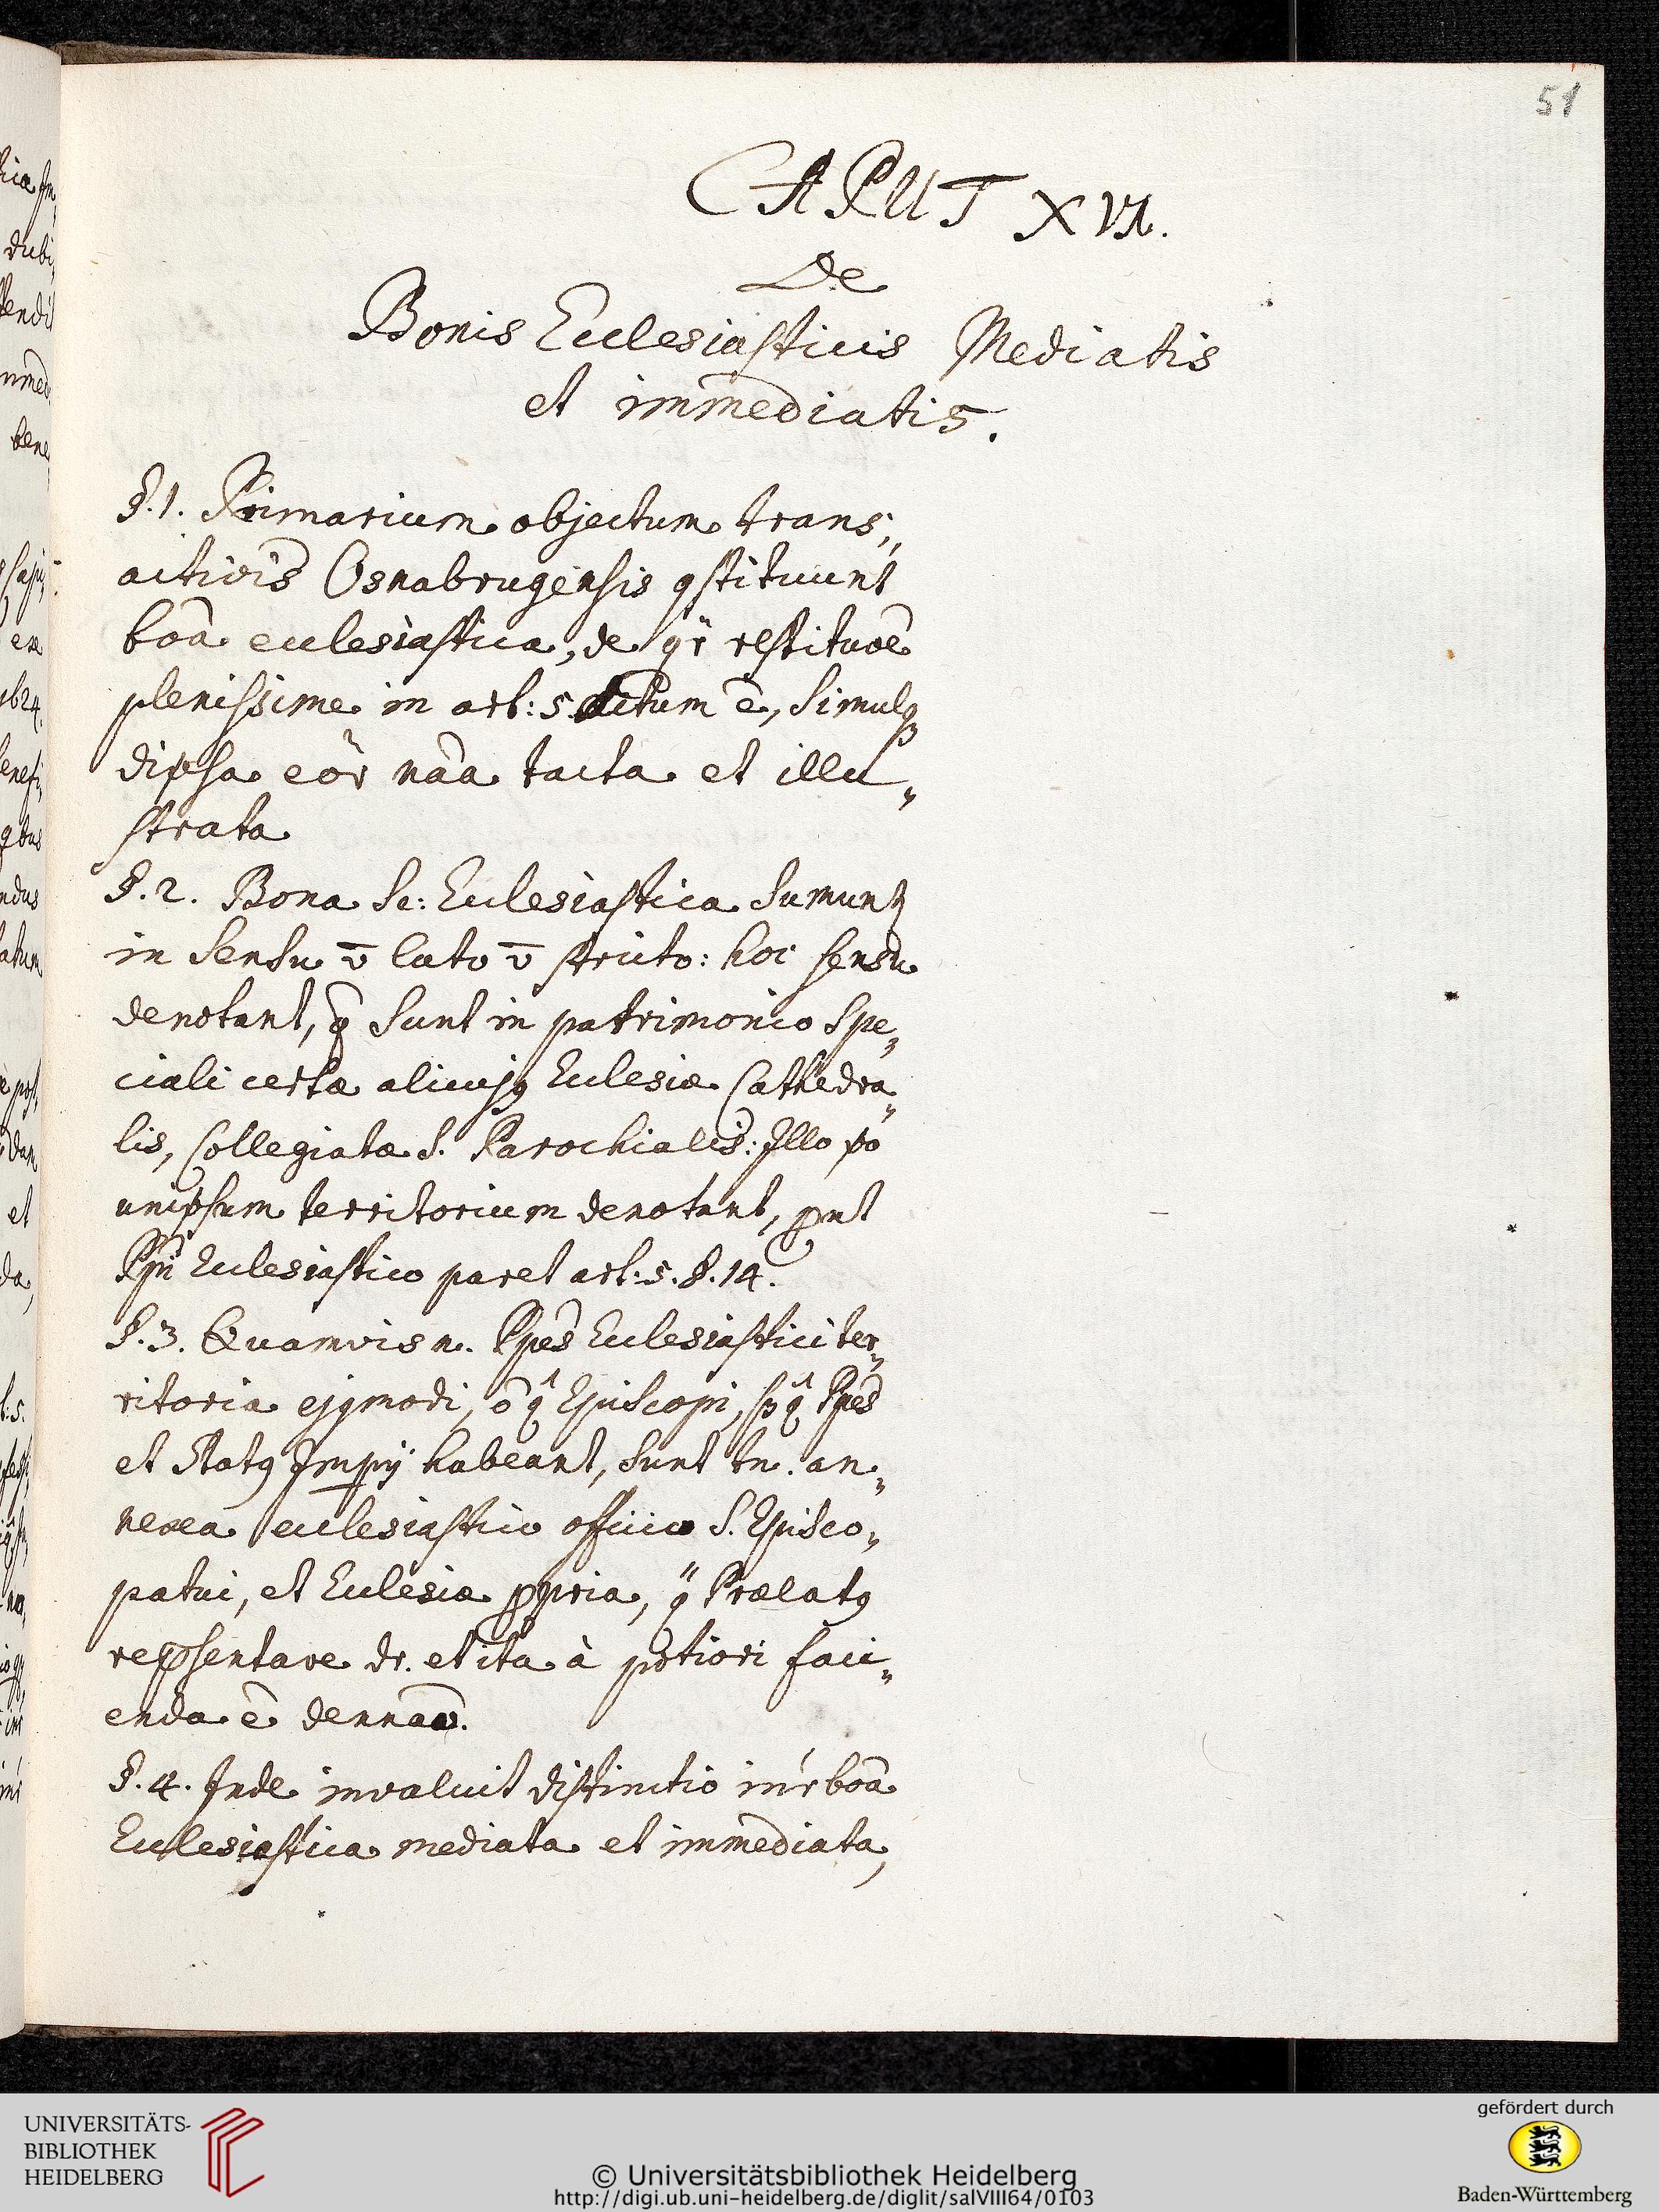 51
CAPUT XVI.
De
Bonis Ecclesiasticis Mediatis
et im̄ediatis.
§.1. Primarium objectum trans,,
actiōis Osnabrugensis ꝯstituunt
boã ecclesiastica, de restituõe
plenissime in art: 5. dictum ẽ, simulq
dipsa eõr nãa tacta et illu„
strata
§.2. Bona Sc: Ecclesiastica sumunt
in sensu v̄ lato v̄ stricto: hoc sensu
denotant, q̃ sunt in patrimonio spe„
ciali certæ alicujꝯ Ecclesiæ Cathedra„
lis, Collegiatæ S. Parochialis: Illo
territorium denotant, put
Ppi Ecclesiastico paret art: 5. §. 14.
§.3. Quamvis n. Ppes Ecclesiastici ter„
ritoria ejꝯmodi, õ q̂ Episcopi, q̂ Ppes
et Statꝯ Impij habeant, sunt tn. an„
nexa ecclesiastico officio S. Episco„
patui, et Ecclesiæ ppria, q̈ Prælatꝯ
repsentare dr. et ita à potiori faci„
enda ẽ dennaõ.
§.4. Inde invaluit distinctio inr boã
Ecclesiastica mediata et im̄ediata,
UNIVERSITÄTS-
BIBLIOTHEK
HEIDELBERG
© Universitätsbibliothek Heidelberg
http://digi.ub.uni-heidelberg.de/diglit/salVIII64/0103
gefördert durch
Baden-Württemberg